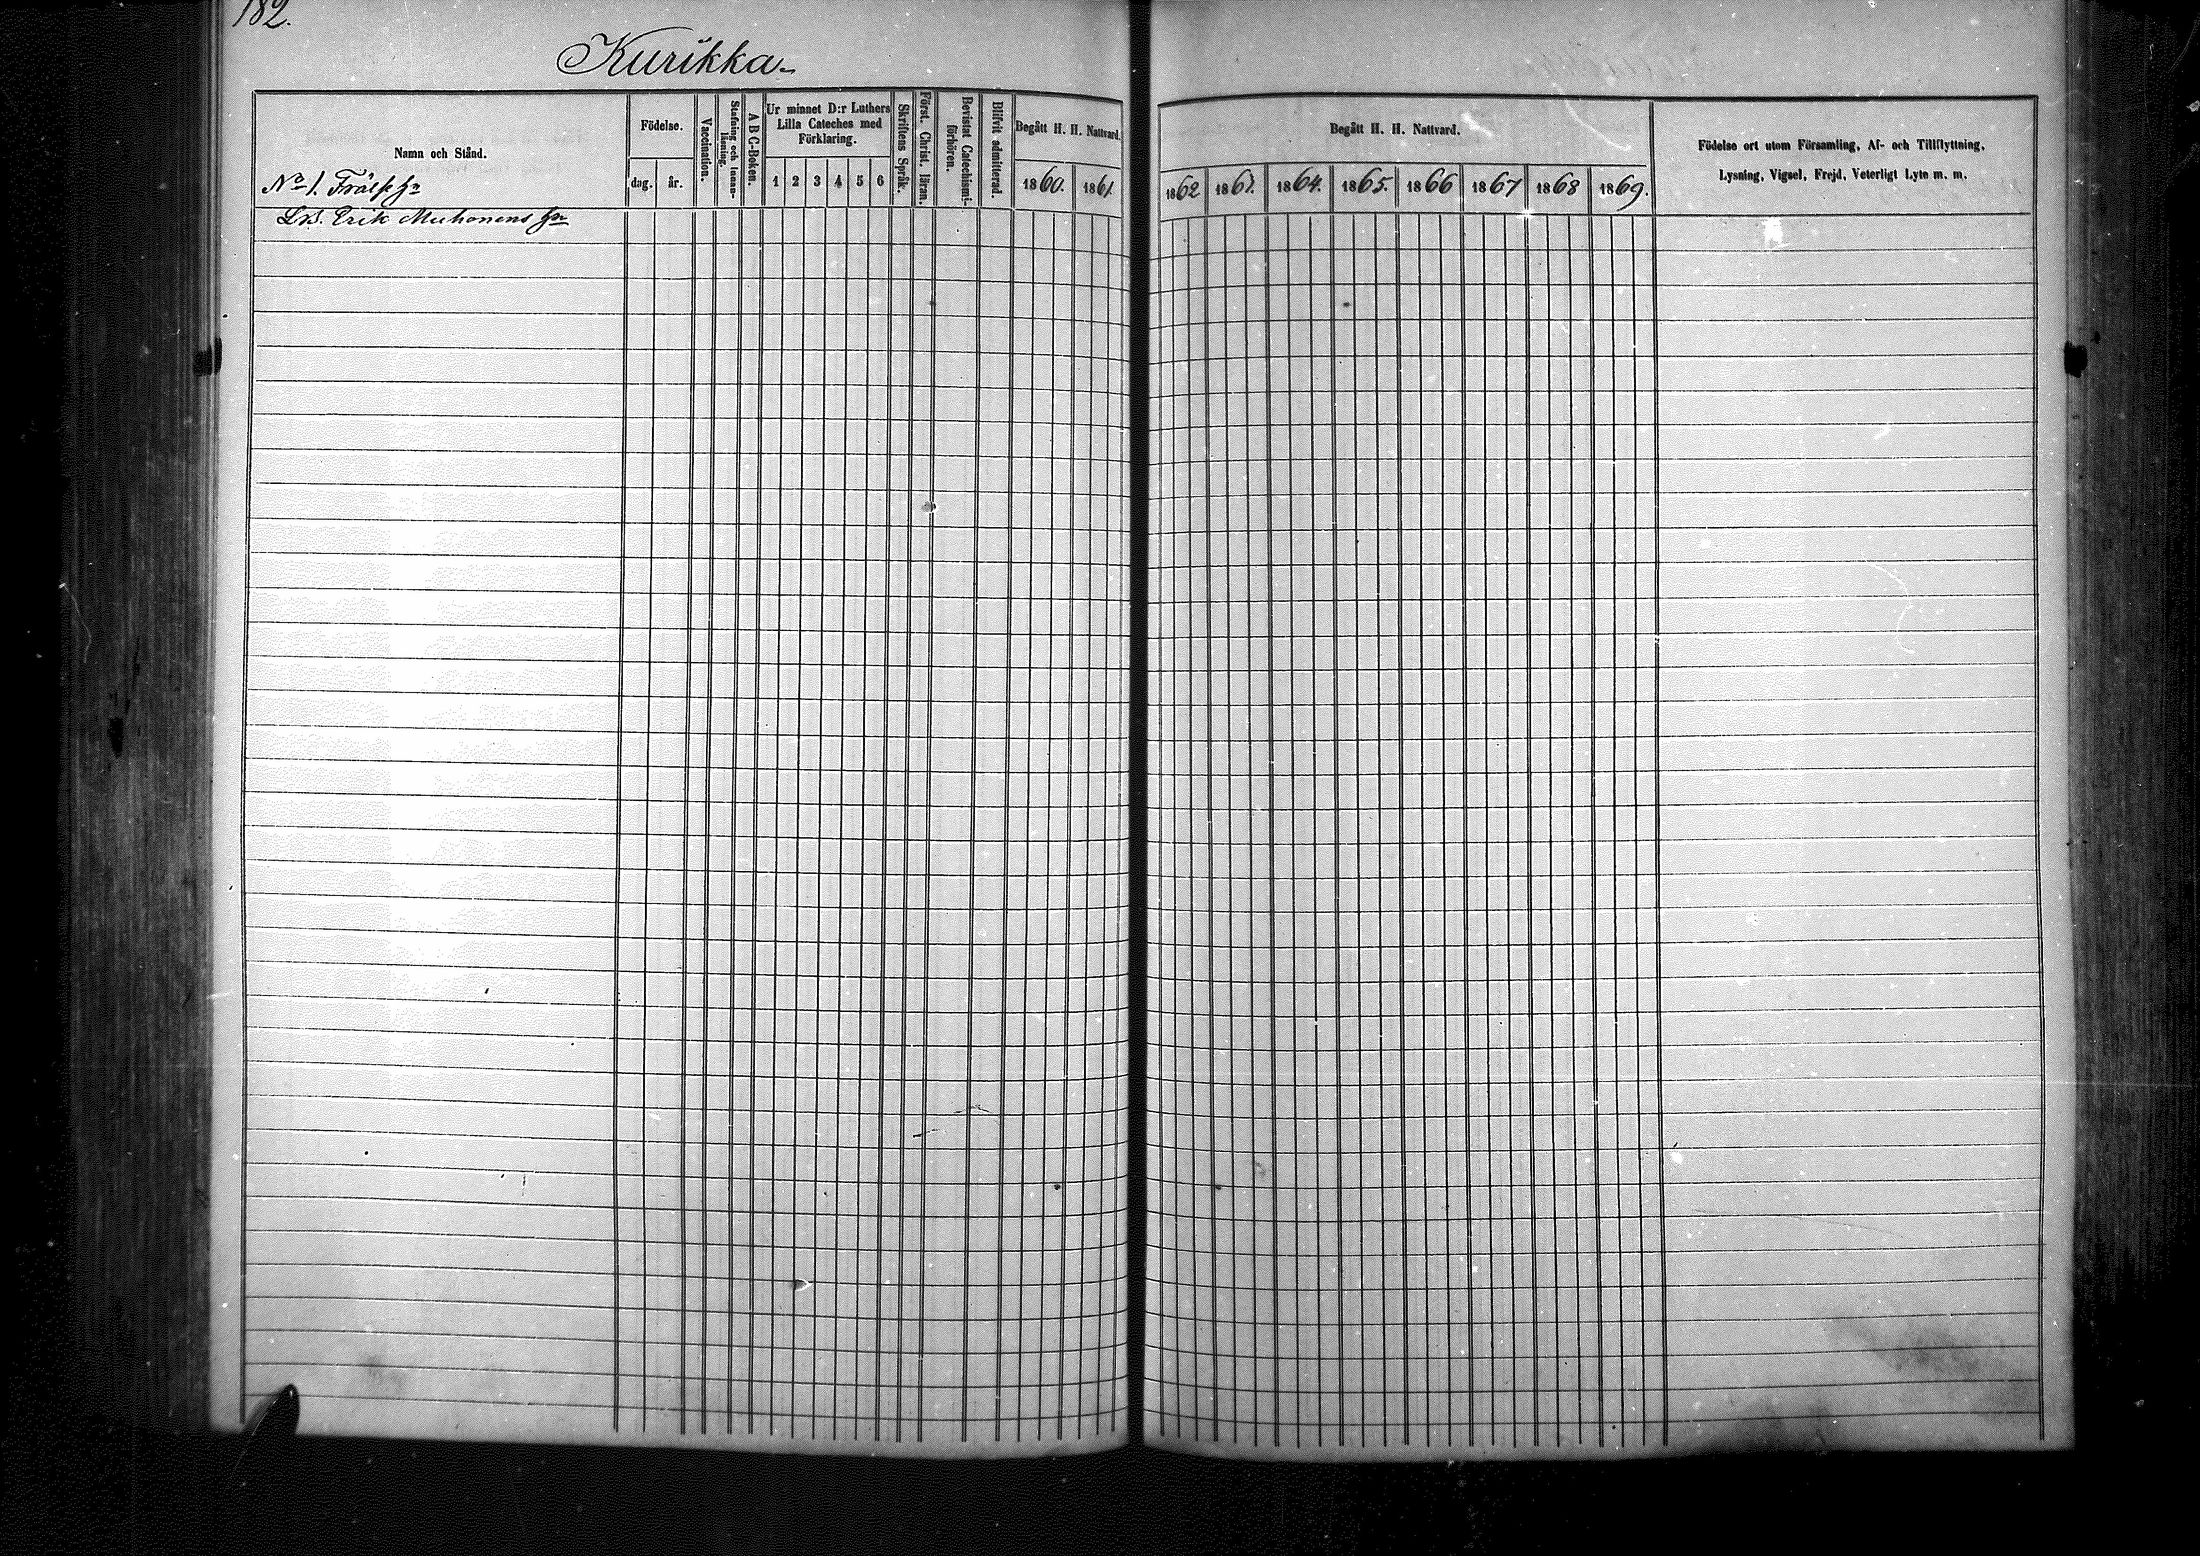 182.
Kurikka
Namn och Stånd.
No 1. Frälse hn
Erik Muhonens hn
Födelse.
dag. år.
Vaccination.
Stafning och Innan-läsning.
A B C-Boken.
Ur minnet D:r Luthers
Lilla Cateches med
Förklaring.
1 2 3 4 5 6
Skriftens Språk.
Först. Christ. läran.
Bevistat Catechismi-förhören.
Blifvit admitterad.
Begått H. H. Nattvard.
1860. 1861.
Begått H. H. Nattvard.
1862 1863. 1864. 1865. 1866 1867 1868 1869.
Födelse ort utom Församling, Af- och Tillflyttning,
Lysning, Vigsel, Frejd, Veterligt Lyte m. m.